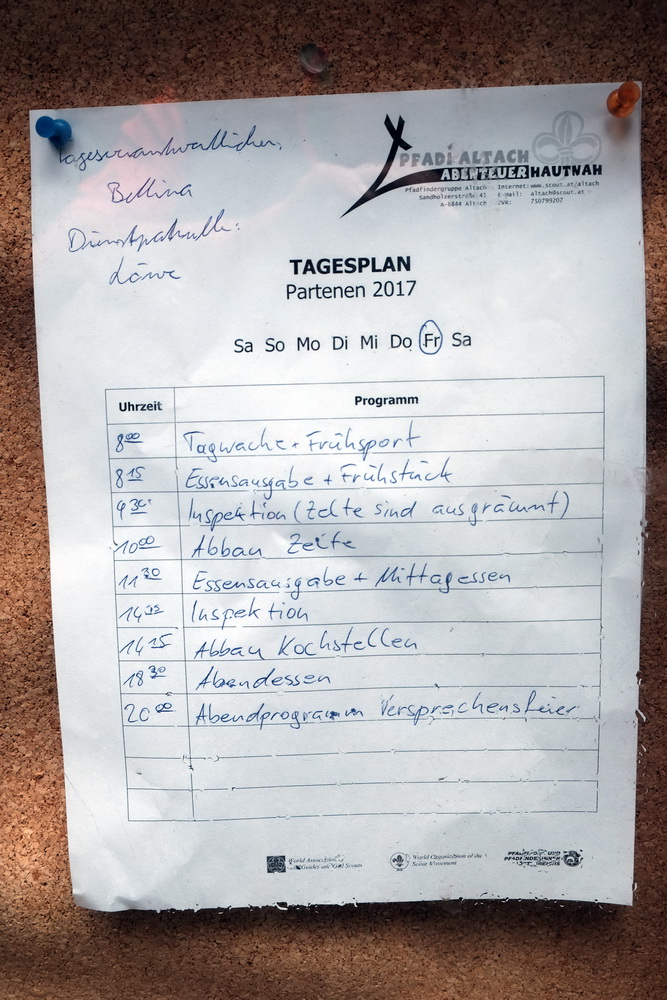 Tagesverantwortlicher:
Bettina
Dienstpatrulle:
Löwe
PFADI ALTACH
ABENTEUER HAUTNAH
Pfadfindergruppe Altach Internet: www.scout.at/altach
Sandholzerstraße 41 E-Mail: altach@scout.at
A-6844 Altach ZVR: 750799207
TAGESPLAN
Partenen 2017
Sa So Mo Di Mi Do Fr Sa
Uhrzeit Programm
8 00 Tagwache + Frühsport
8 15 Essensausgabe + Frühstück
9 30 Inspektion (Zelte sind ausgräumt)
10 00 Abbau Zelte
11 30 Essensausgabe + Mittagessen
14 Inspektion
14 15 Abbau Kochstellen
18 30 Abendessen
20 00 Abendprogramm Versprechensfeier
World Association of
Girl Guides and Girl Scouts
World Organization of the
Scout Movement
PFADFINDER UND
PFADFINDERINNEN